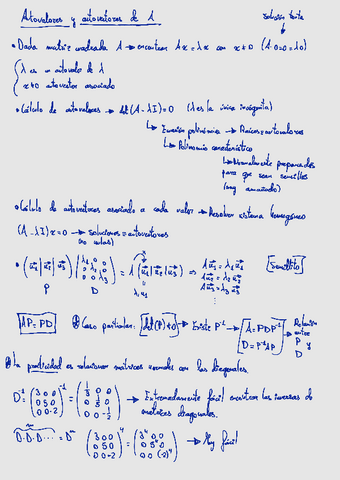 Autovalores y autovectores de A
solución trivial
• Dada matriz cuadrada A → encontrar Ax = λx con x ≠ 0 (A·0=0=λ0)
λ es un autovalor de A
x ≠ 0 autovector asociado
• Cálculo de autovalores → det(A - λI) = 0 (λ es la única incógnita)
↳ Ecuación polinómica → Raíces = autovalores
↳ Polinomio característico
↳ Normalmente preparados
para que sean sencillos
(muy amañado)
• Cálculo de autovectores asociado a cada valor → Resolver sistema homogéneo
(A - λI)x = 0 → soluciones = autovectores
(no nulas)
• (u₁ | u₂ | u₃) (λ₁ 0 0 / 0 λ₂ 0 / 0 0 λ₃) = A (u₁ | u₂ | u₃) ⇒ Au₁ = λ₁u₁
Au₂ = λ₂u₂
Au₃ = λ₃u₃
[Sencillito]
P D λ₁u₁
AP = PD
⊛ Caso particular: det(P) ≠ 0 → Existe P⁻¹ → A = PDP⁻¹
D = P⁻¹AP
→ Relación
entre
P y
D
⊛ La practicidad es relacionar matrices normales con las diagonales.
D⁻¹ = (3 0 0 / 0 5 0 / 0 0 -2)⁻¹ = (1/3 0 0 / 0 1/5 0 / 0 0 -1/2) → Extremadamente fácil encontrar las inversas de
matrices diagonales.
D·D·D··· = Dⁿ (3 0 0 / 0 5 0 / 0 0 -2)⁴ = (3⁴ 0 0 / 0 5⁴ 0 / 0 0 (-2)⁴) → Muy fácil